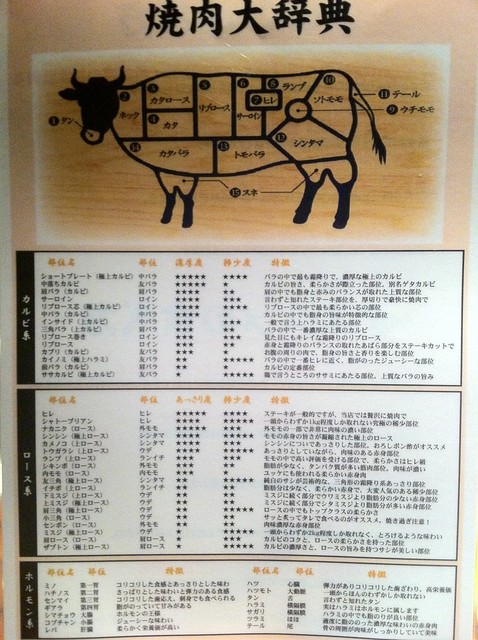 焼肉大辞典
❶タン
❷
ネック
❸
カタロース
❹
カタ
❺
リブロース
❻
サーロイン
❼ヒレ
❽ランプ
❿
ソトモモ
⓫テール
❾ウチモモ
⓬
シンタマ
⓭
トモバラ
⓮
カタバラ
⓯スネ
カルビ系
部位名 部位 濃厚度 稀少度 特徴
ショートプレート（極上カルビ） 中バラ ★★★★★ ★★★★ バラの中で最も霜降りで、濃厚な極上のカルビ
中落ちカルビ 友バラ カルビの旨さ、柔らかさが際立った部位。別名ゲタカルビ
肩バラ（カルビ） 肩バラ 肩の中でも脂身と赤みのバランスが取れた上質な部位
サーロイン ロイン 言わずと知れたステーキ部位を、厚切りで豪快に焼肉で
リブロース芯（極上カルビ） ロイン リブロースの中で最も柔らかい芯の部位
中バラ（カルビ） 中バラ カルビの中でも脂身の旨味が特徴的な部位
インサイド（上カルビ） 中バラ 一般で言う上ハラミにあたる部位
三角バラ（上カルビ） 肩バラ バラの中で一番濃厚な上質のカルビ
リブロース巻き ロイン 見た目にもキレイな霜降りのリブロース
リブロース ロイン 赤身と霜降りのバランスの取れたあばら部分をステーキカットで
カブリ（カルビ） 友バラ お腹周りの肉で、脂身の旨さと香りを楽しむ部位
カイノミ（極上ハラミ） 友バラ バラの中で一番ヒレに近く、脂がのったジューシーな部位
前バラ（カルビ） 肩バラ カルビの定番部位
ササカルビ（極上カルビ） 友バラ 鶏で言うところのササミにあたる部位。上質なバラの旨み
ロース系
部位名 部位 あっさり度 稀少度 特徴
ヒレ ヒレ ステーキが一般的ですが、当店では贅沢に焼肉で
シャトーブリアン ヒレ 一頭からわずか1kg程度しか取れない究極の稀少部位
ナカニク（ロース） 外モモ 外モモの一部で非常に肉味の濃い部位
シンシン（極上ロース） シンタマ モモの赤身の旨さが凝縮された極上のロース
カメノコ（上ロース） シンタマ シンシンについであっさりした部位。おろしポン酢がオススメ
トウガラシ（上ロース） ウデ あっさりとしていながら、肉味のある赤身部位
ランプ（上ロース） ランイチ モモの中で高い評価を受ける部位で、柔らかさはヒレ級
シキンボ（ロース） 外モモ 脂肪が少なく、タンパク質が多い筋肉部位。肉味が濃い
内モモ（ロース） 内モモ ユッケにも使われる柔らかい赤身肉
友三角（極上ロース） シンタマ 純白のサシが芸術的な、三角形の霜降り系あっさり部位
イチボ（上ロース） ランイチ 脂肪分は少なく、柔らかい赤身で、大変人気のある稀少部位
ドミスジ（上ロース） ウデ ミスジに続く部分でウワミスジより脂肪分の少ない赤身部位
上ミスジ（極上ロース） ウデ ミスジに続く部分でシタミスジより脂肪分が多い赤身部位
肩三角（極上ロース） ウデ ロースの中でもトップクラスの柔らかさ
小三角（ロース） ウデ サッと炙ってタレで食べるのがオススメ。焼き過ぎ注意！
センボン（ロース） 外モモ 肉味濃厚な赤身部位
ミスジ（極上ロース） ウデ 一頭からわずか2kg程度しか取れなく、とろけるような味わい
肩ロース（ロース） ロイン カルビのコクと、ロースの柔らかさを持った部位
ザブトン（極上ロース） ロイン カルビの濃厚さと、ロースの旨みを持つサシが美しい部位
ホルモン系
部位名 部位 特徴
ミノ 第一胃 コリコリした食感とあっさりとした味わ
ハチノス 第二胃 さっぱりとした味わいと弾力のある食感
センマイ 第三胃 コリコリした歯応え。刺身でも食べられる
ギアラ 第四胃 脂がのっていて甘みがある
シマチョウ 大腸 ホルモンの王様
コプチャン 小腸 ジューシーな味わい
レバ 肝臓 柔らかく栄養価が高い
部位名 部位 特徴
ハツ 心臓 弾力がありコリコリした歯ざわり。高栄養価
ハツモト 大動脈 一頭からほんのわずかしか取れない
タン 舌 わずかしか取れないタン
ハラミ 横隔膜 実はハラミはホルモンに属します
サガリ 横隔膜 ハラミの中でも脂のりが良い部位
ツラミ ほほ 適度に脂ののった濃厚な味わいの赤身肉
テール 尾 骨の周りの肉味がしっかりしていて美味